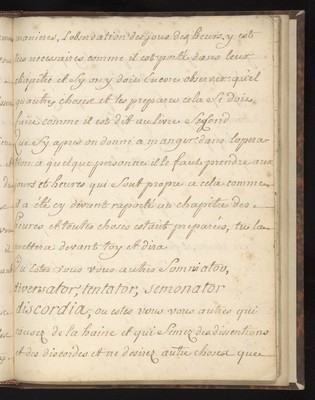 manieres, L'obseruation des jours des heures, y est
tres necessaires, comme il est porté dans leur
chapitre et Sy on y doit Encore obseruer quel
quautres choses et les preparer cela se doit
faire comme il est dit au liure Second
que Sy apres on donne a manger dans l'opera
tion a quelque personne il le faut prendre aux
jours et heures qui Sont propre a cela comme
a été cy deuant raporté au chapitre des
heures et toutes choses estant preparées, tu la
mettera deuant toy et dira
Ou Estes vous vous autres Somniator,
diversator, tentator, semonator
discordia, ou estes vous vous autres qui
causez de la haine et qui Semez des dissentions
et des discordes et ne desirez autre choses que